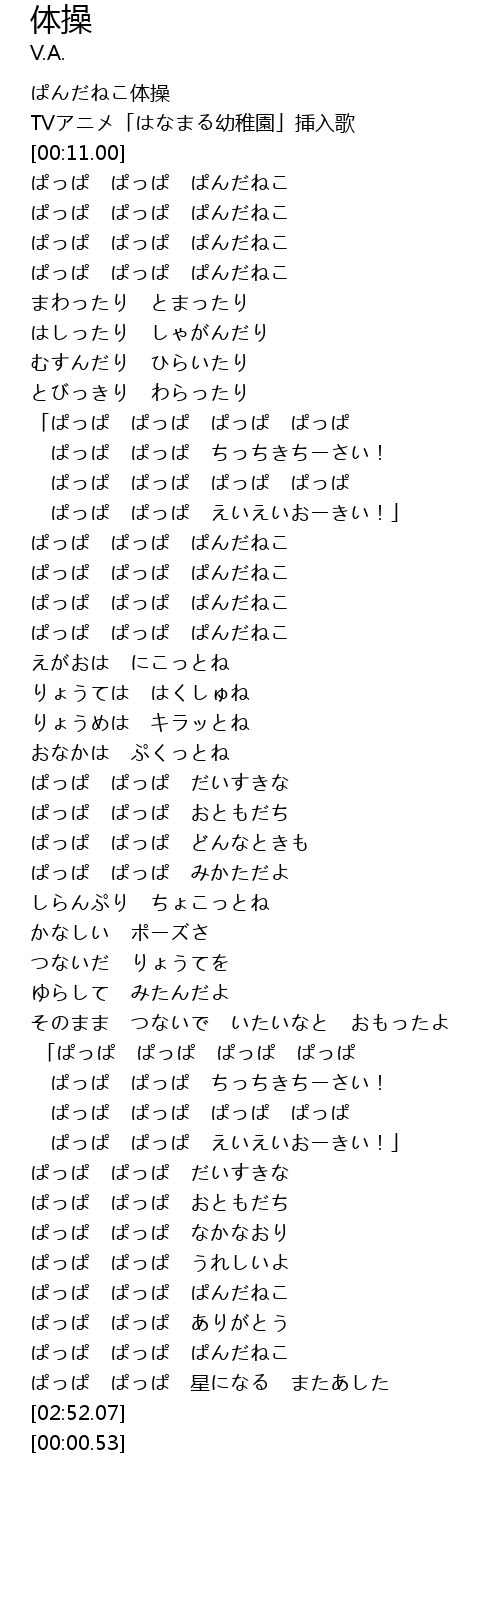 体操
V.A.
ぱんだねこ体操
TVアニメ「はなまる幼稚園」挿入歌
[00:11.00]
ぱっぱ　ぱっぱ　ぱんだねこ
ぱっぱ　ぱっぱ　ぱんだねこ
ぱっぱ　ぱっぱ　ぱんだねこ
ぱっぱ　ぱっぱ　ぱんだねこ
まわったり　とまったり
はしったり　しゃがんだり
むすんだり　ひらいたり
とびっきり　わらったり
「ぱっぱ　ぱっぱ　ぱっぱ　ぱっぱ
　ぱっぱ　ぱっぱ　ちっちきちーさい！
　ぱっぱ　ぱっぱ　ぱっぱ　ぱっぱ
　ぱっぱ　ぱっぱ　えいえいおーきい！」
ぱっぱ　ぱっぱ　ぱんだねこ
ぱっぱ　ぱっぱ　ぱんだねこ
ぱっぱ　ぱっぱ　ぱんだねこ
ぱっぱ　ぱっぱ　ぱんだねこ
えがおは　にこっとね
りょうては　はくしゅね
りょうめは　キラッとね
おなかは　ぷくっとね
ぱっぱ　ぱっぱ　だいすきな
ぱっぱ　ぱっぱ　おともだち
ぱっぱ　ぱっぱ　どんなときも
ぱっぱ　ぱっぱ　みかただよ
しらんぷり　ちょこっとね
かなしい　ポーズさ
つないだ　りょうてを
ゆらして　みたんだよ
そのまま　つないで　いたいなと　おもったよ
「ぱっぱ　ぱっぱ　ぱっぱ　ぱっぱ
　ぱっぱ　ぱっぱ　ちっちきちーさい！
　ぱっぱ　ぱっぱ　ぱっぱ　ぱっぱ
　ぱっぱ　ぱっぱ　えいえいおーきい！」
ぱっぱ　ぱっぱ　だいすきな
ぱっぱ　ぱっぱ　おともだち
ぱっぱ　ぱっぱ　なかなおり
ぱっぱ　ぱっぱ　うれしいよ
ぱっぱ　ぱっぱ　ぱんだねこ
ぱっぱ　ぱっぱ　ありがとう
ぱっぱ　ぱっぱ　ぱんだねこ
ぱっぱ　ぱっぱ　星になる　またあした
[02:52.07]
[00:00.53]